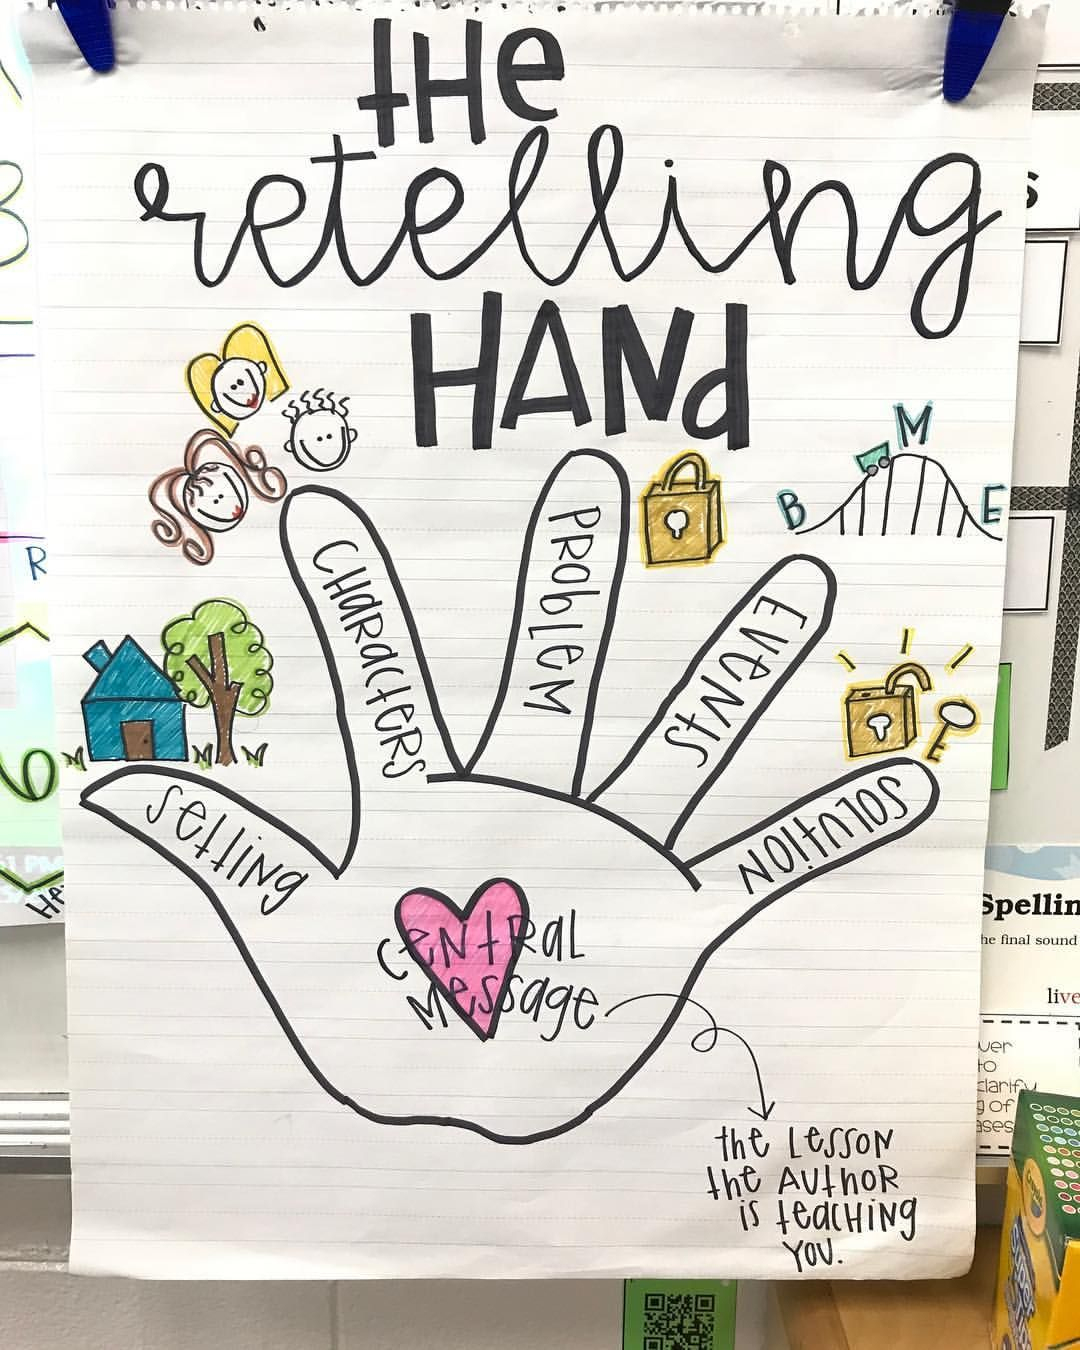 tHe
retelling
HANd
B
M
E
CHaRacteRS
PRoblem
EVENtS
Setting
SOLUtiON
CeNtRaL
Message
the LeSSON
the AUtHOR
is teacHing
YOU.
R
Spellin
he final sound
live
to
clarify
g of
ases